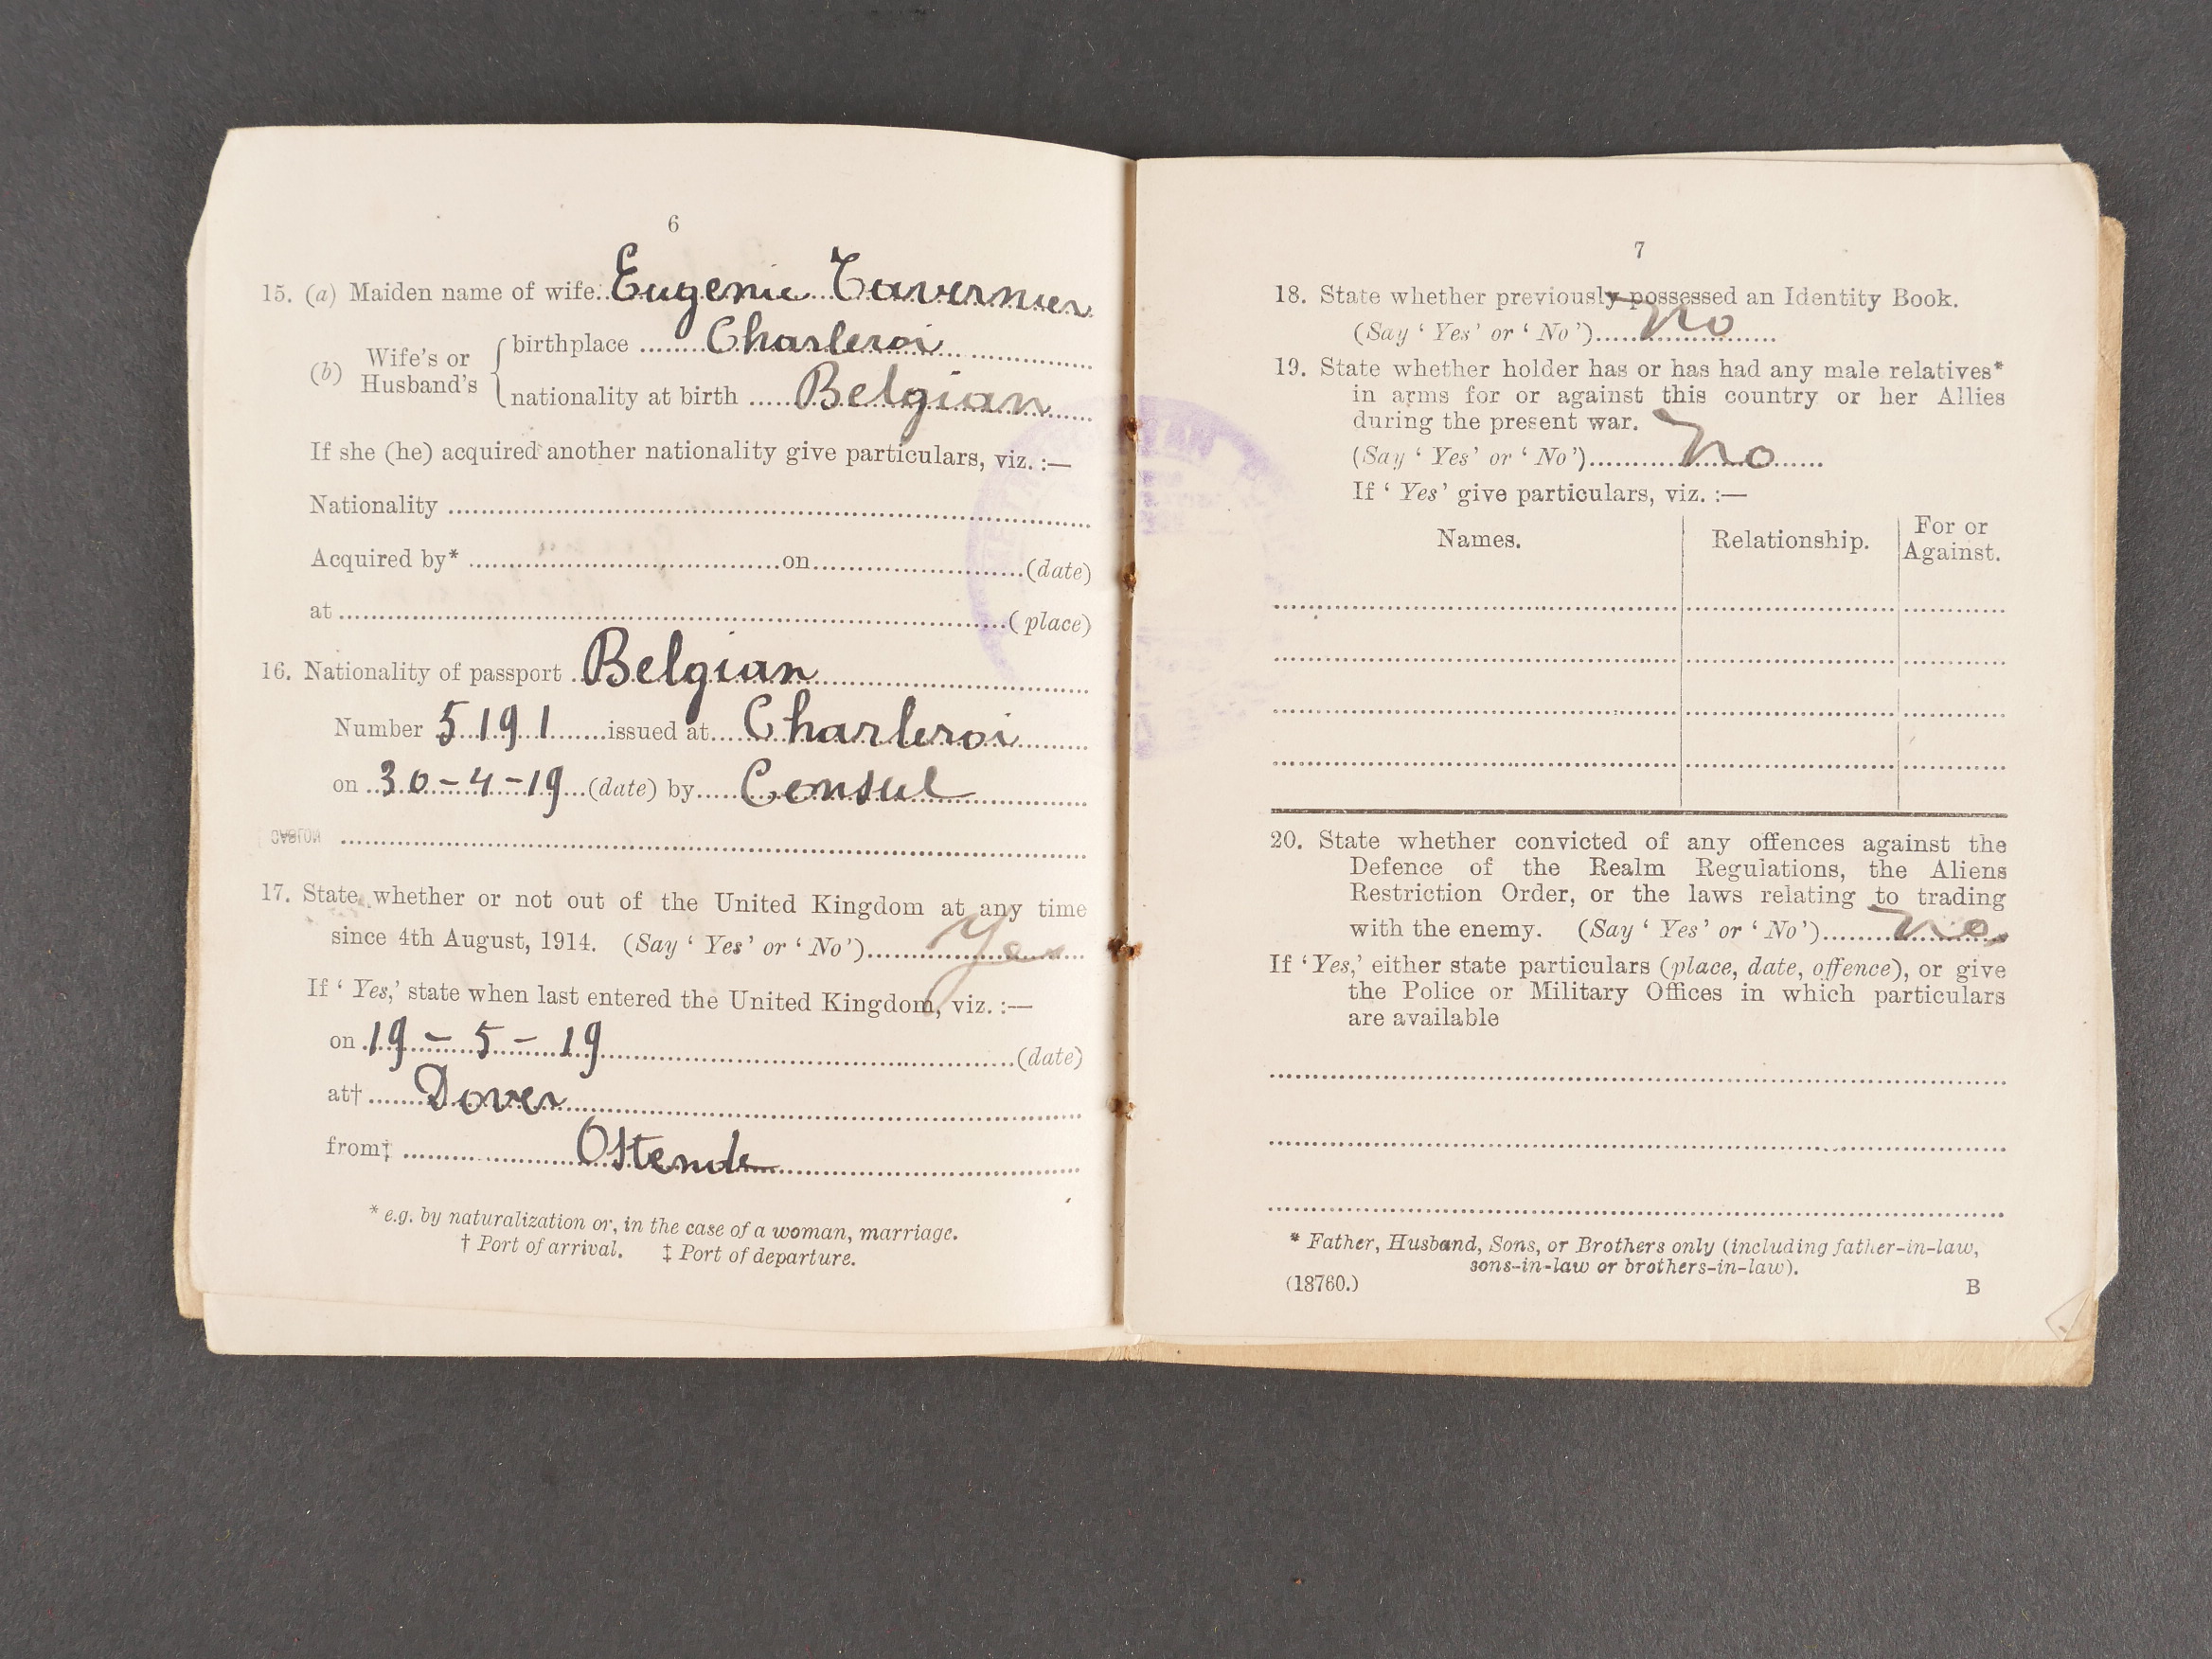 6
15. (a) Maiden name of wife Eugenie Tavernier
(b) Wife's or Husband's
birthplace Charleroi
nationality at birth Belgian
If she (he) acquired another nationality give particulars, viz. :—
Nationality
Acquired by* on (date)
at (place)
16. Nationality of passport Belgian
Number 5191 issued at Charleroi
on 30-4-19 (date) by Consul
17. State whether or not out of the United Kingdom at any time
since 4th August, 1914. (Say ‘ Yes’ or ‘ No’) Yes
If ‘ Yes,’ state when last entered the United Kingdom, viz. :—
on 19-5-19 (date)
at† Dover
from‡ Ostende
* e.g. by naturalization or, in the case of a woman, marriage.
† Port of arrival. ‡ Port of departure.
7
18. State whether previously possessed an Identity Book.
(Say ‘ Yes’ or ‘ No’) No
19. State whether holder has or has had any male relatives*
in arms for or against this country or her Allies
during the present war.
(Say ‘ Yes’ or ‘ No’) No
If ‘ Yes’ give particulars, viz. :—
Names. Relationship. For or Against.
20. State whether convicted of any offences against the
Defence of the Realm Regulations, the Aliens
Restriction Order, or the laws relating to trading
with the enemy. (Say ‘ Yes’ or ‘ No’) No
If ‘Yes,’ either state particulars (place, date, offence), or give
the Police or Military Offices in which particulars
are available
* Father, Husband, Sons, or Brothers only (including father-in-law,
sons-in-law or brothers-in-law).
(18760.) B